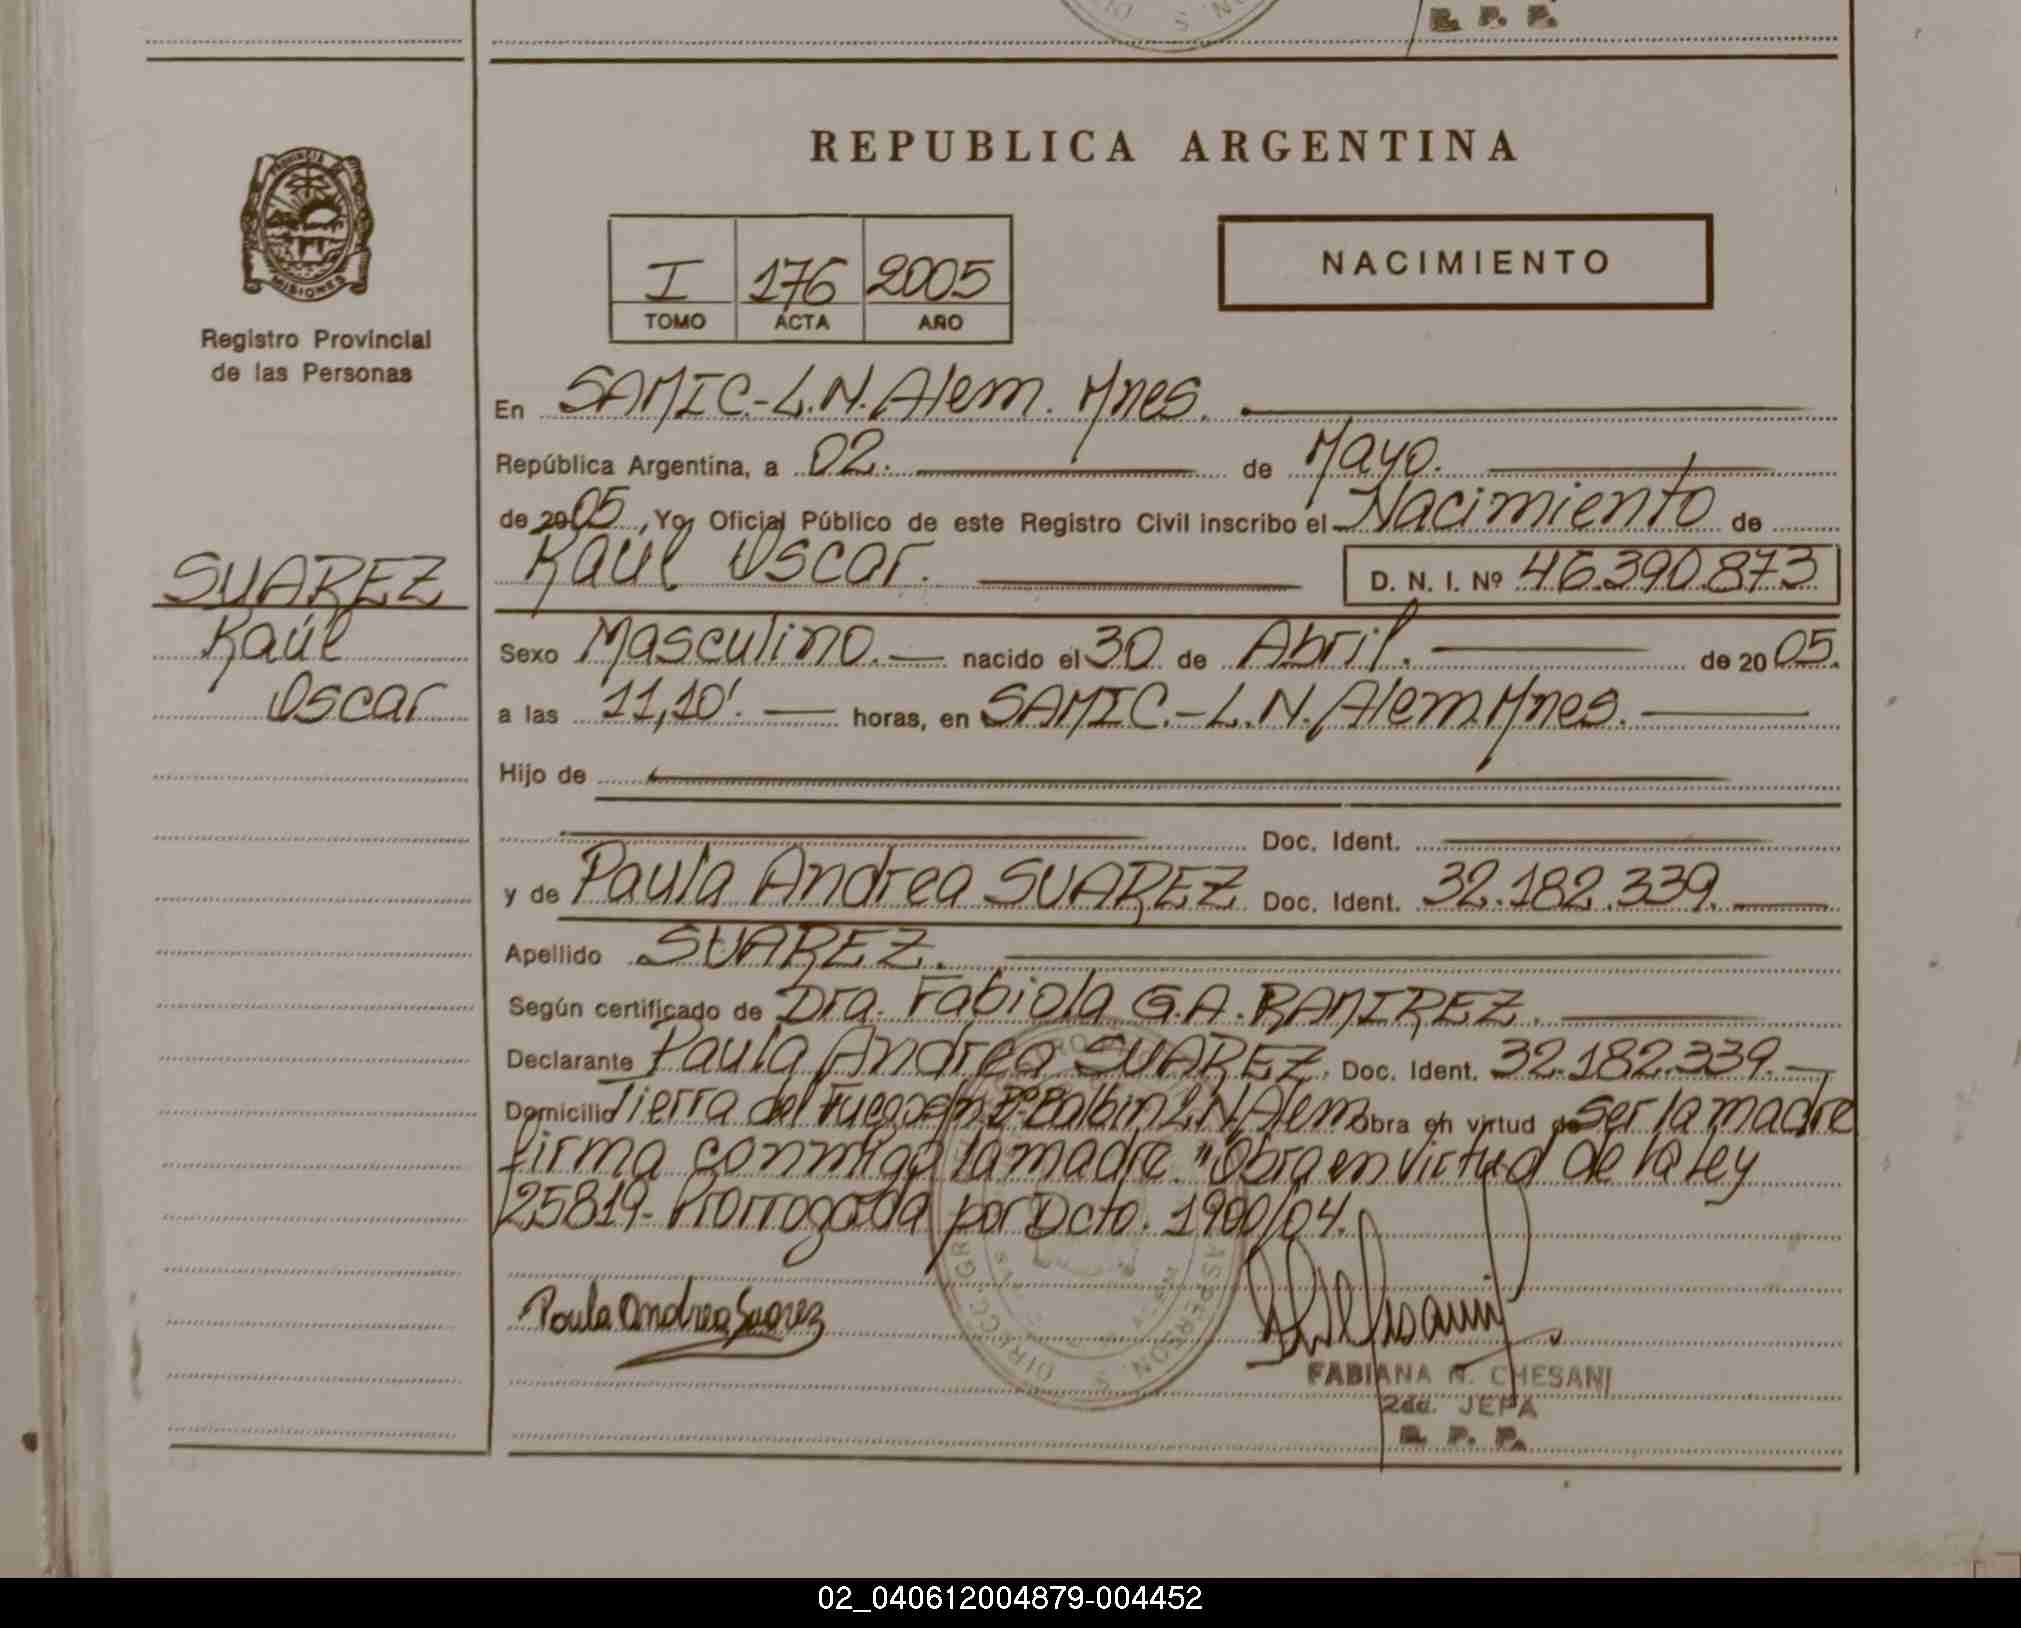 R. P. P.
REPUBLICA ARGENTINA
PROVINCIA DE
MISIONES
Registro Provincial
de las Personas
I 176 2005
TOMO ACTA AÑO
NACIMIENTO
En SAMIC.-L.N.Alem. Mnes.
República Argentina, a 02. de Mayo.
de 2005, Yo, Oficial Público de este Registro Civil inscribo el Nacimiento de
Raúl Oscar. D. N. I. Nº 46.390.873
SUAREZ
Raúl
Oscar
Sexo Masculino. nacido el 30 de Abril. de 2005.
a las 11,10'. horas, en SAMIC.-L.N.Alem.Mnes.
Hijo de
Doc. Ident.
y de Paula Andrea SUAREZ Doc. Ident. 32.182.339.
Apellido SUAREZ.
Según certificado de Dra. Fabiola G.A. RAMIREZ.
Declarante Paula Andrea SUAREZ. Doc. Ident. 32.182.339.
Domicilio Tierra del Fuego s/n Bº Balbin L.N.Alem Obra en virtud de ser la madre
firma conmigo la madre. "Obra en virtud de la Ley
25819- Prorrogada por Dcto. 1900/04.
Paula Andrea Suarez
FABIANA N. CHESANI
2da. JEFA
R. P. P.
02_040612004879-004452